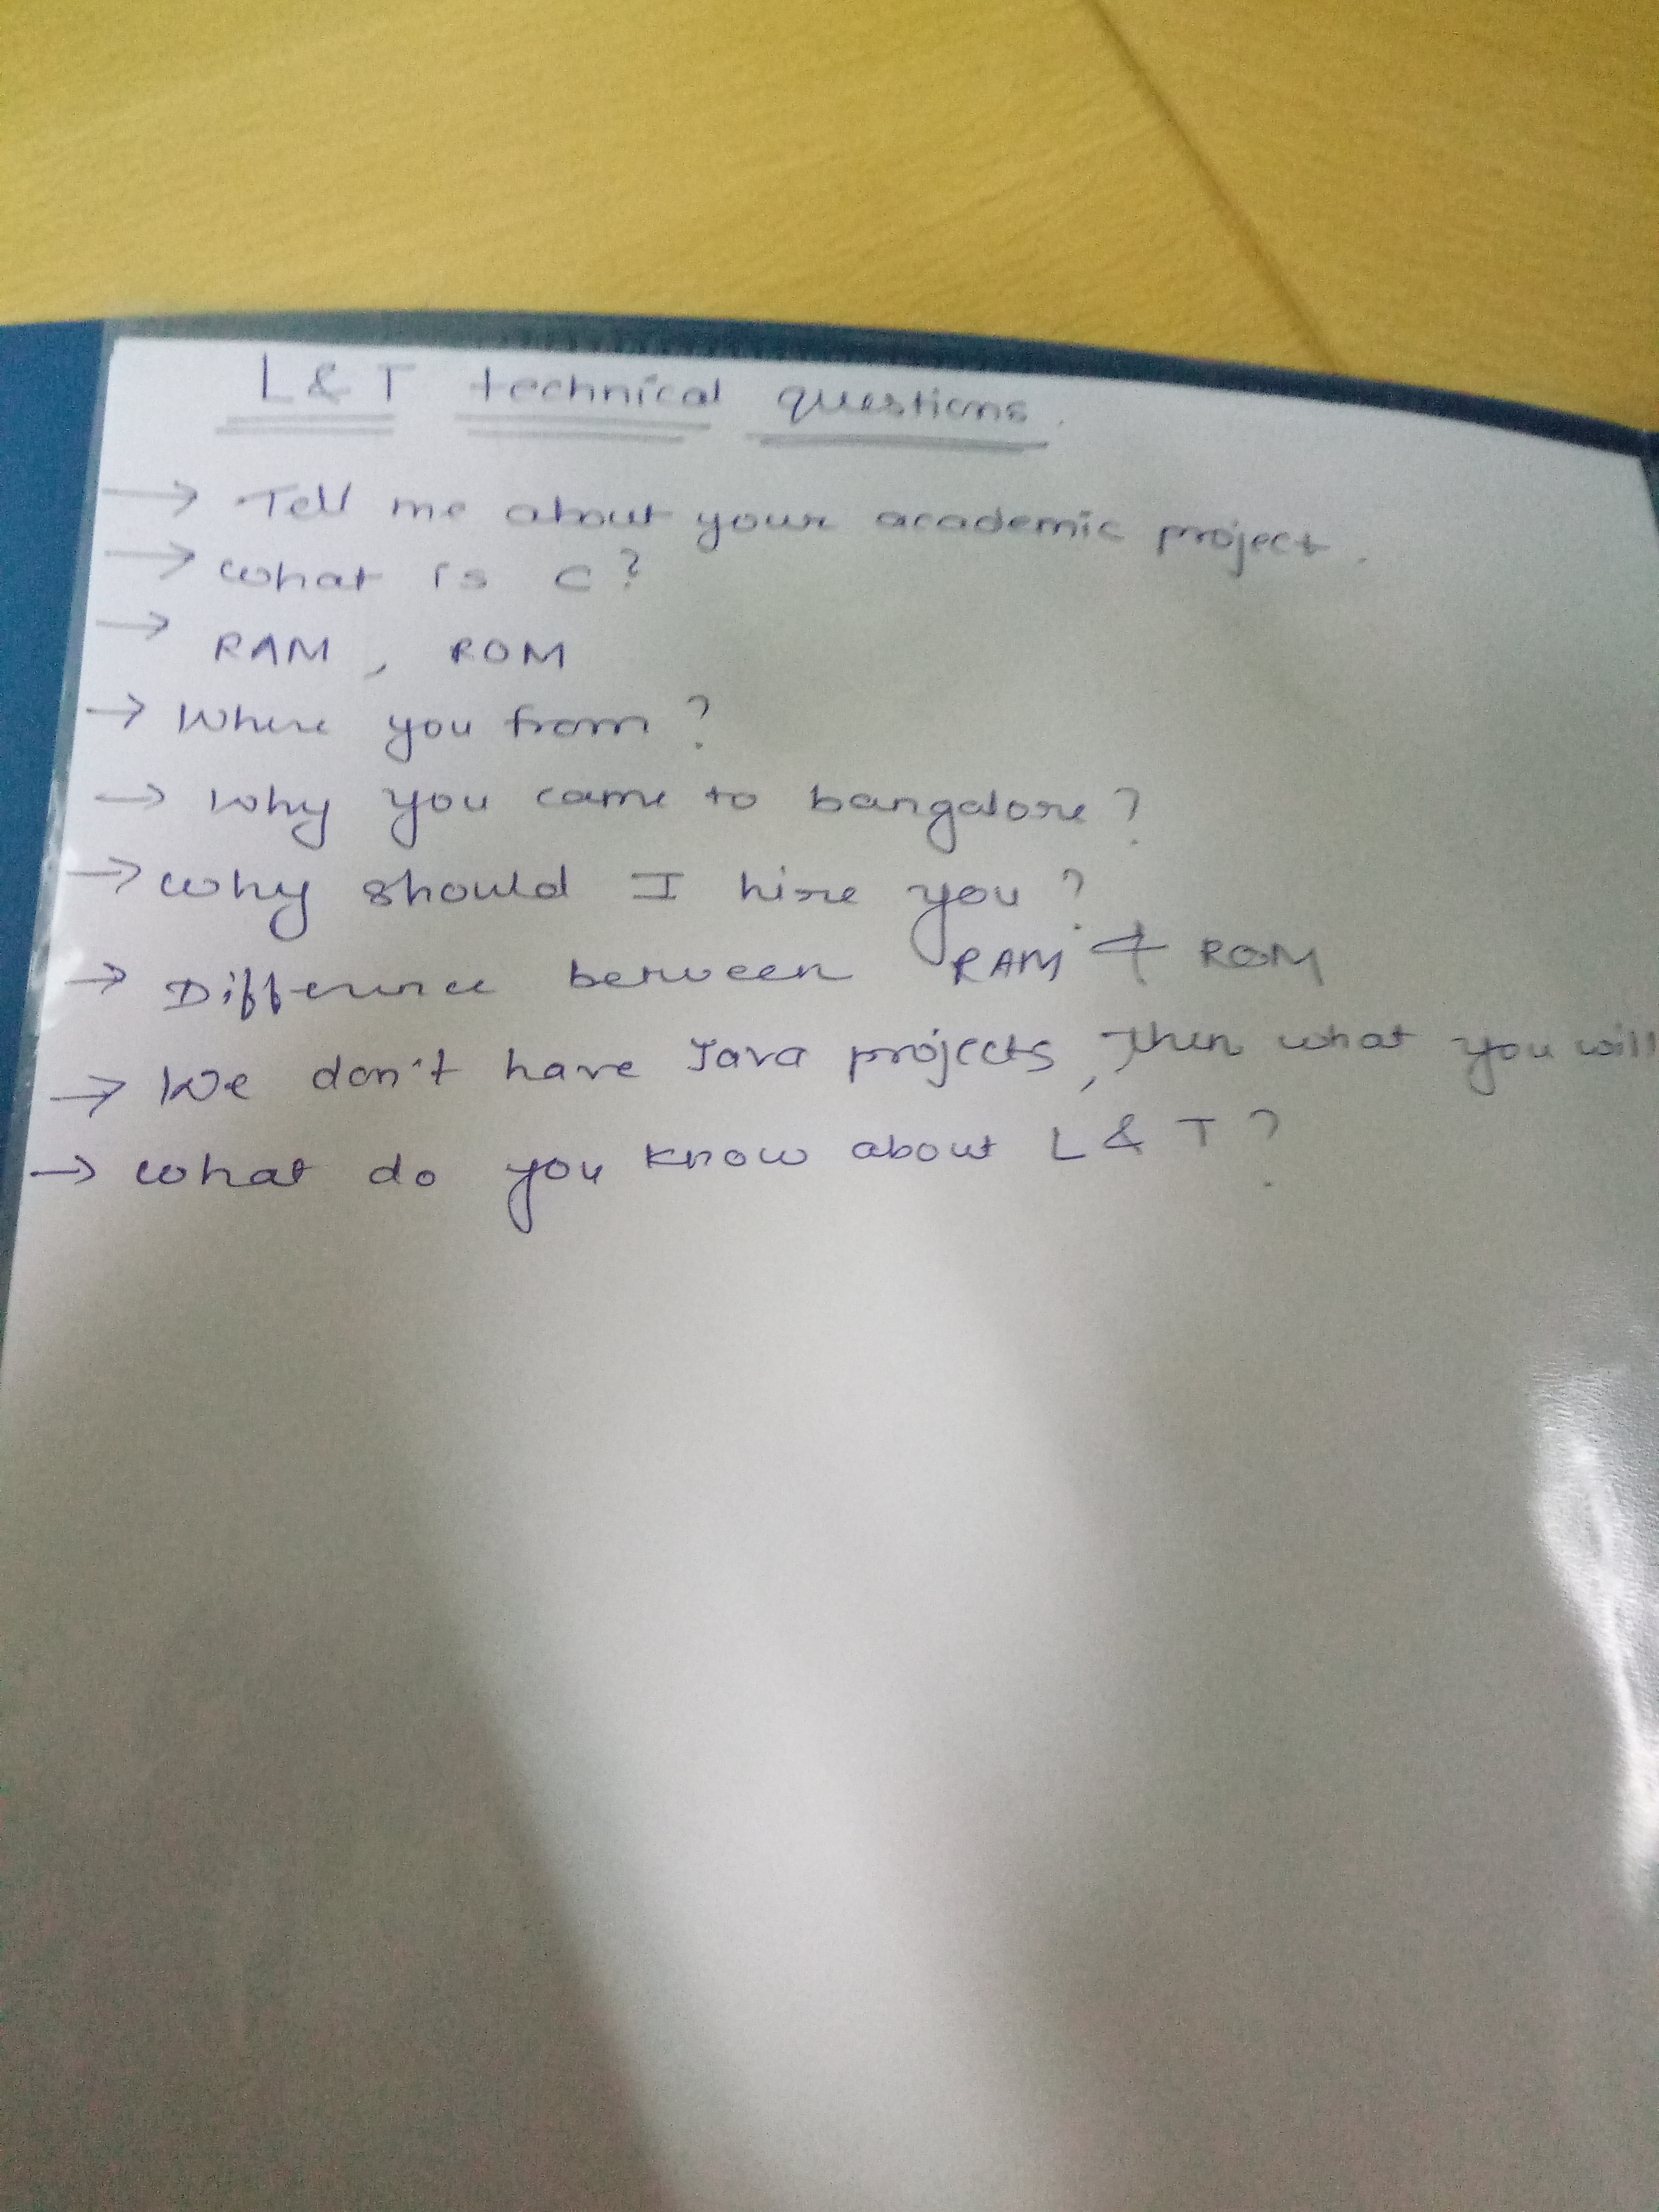 L & T technical questions.
→ Tell me about your academic project.
→ what is c?
→ RAM, ROM
→ Where you from?
→ Why you came to bangalore?
→ why should I hire you?
→ Difference between RAM & ROM
→ We don't have Java projects, then what you will
→ what do you know about L & T?